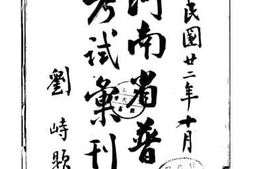 民國廿二年十月
河南省普
考試彙刊
劉峙題